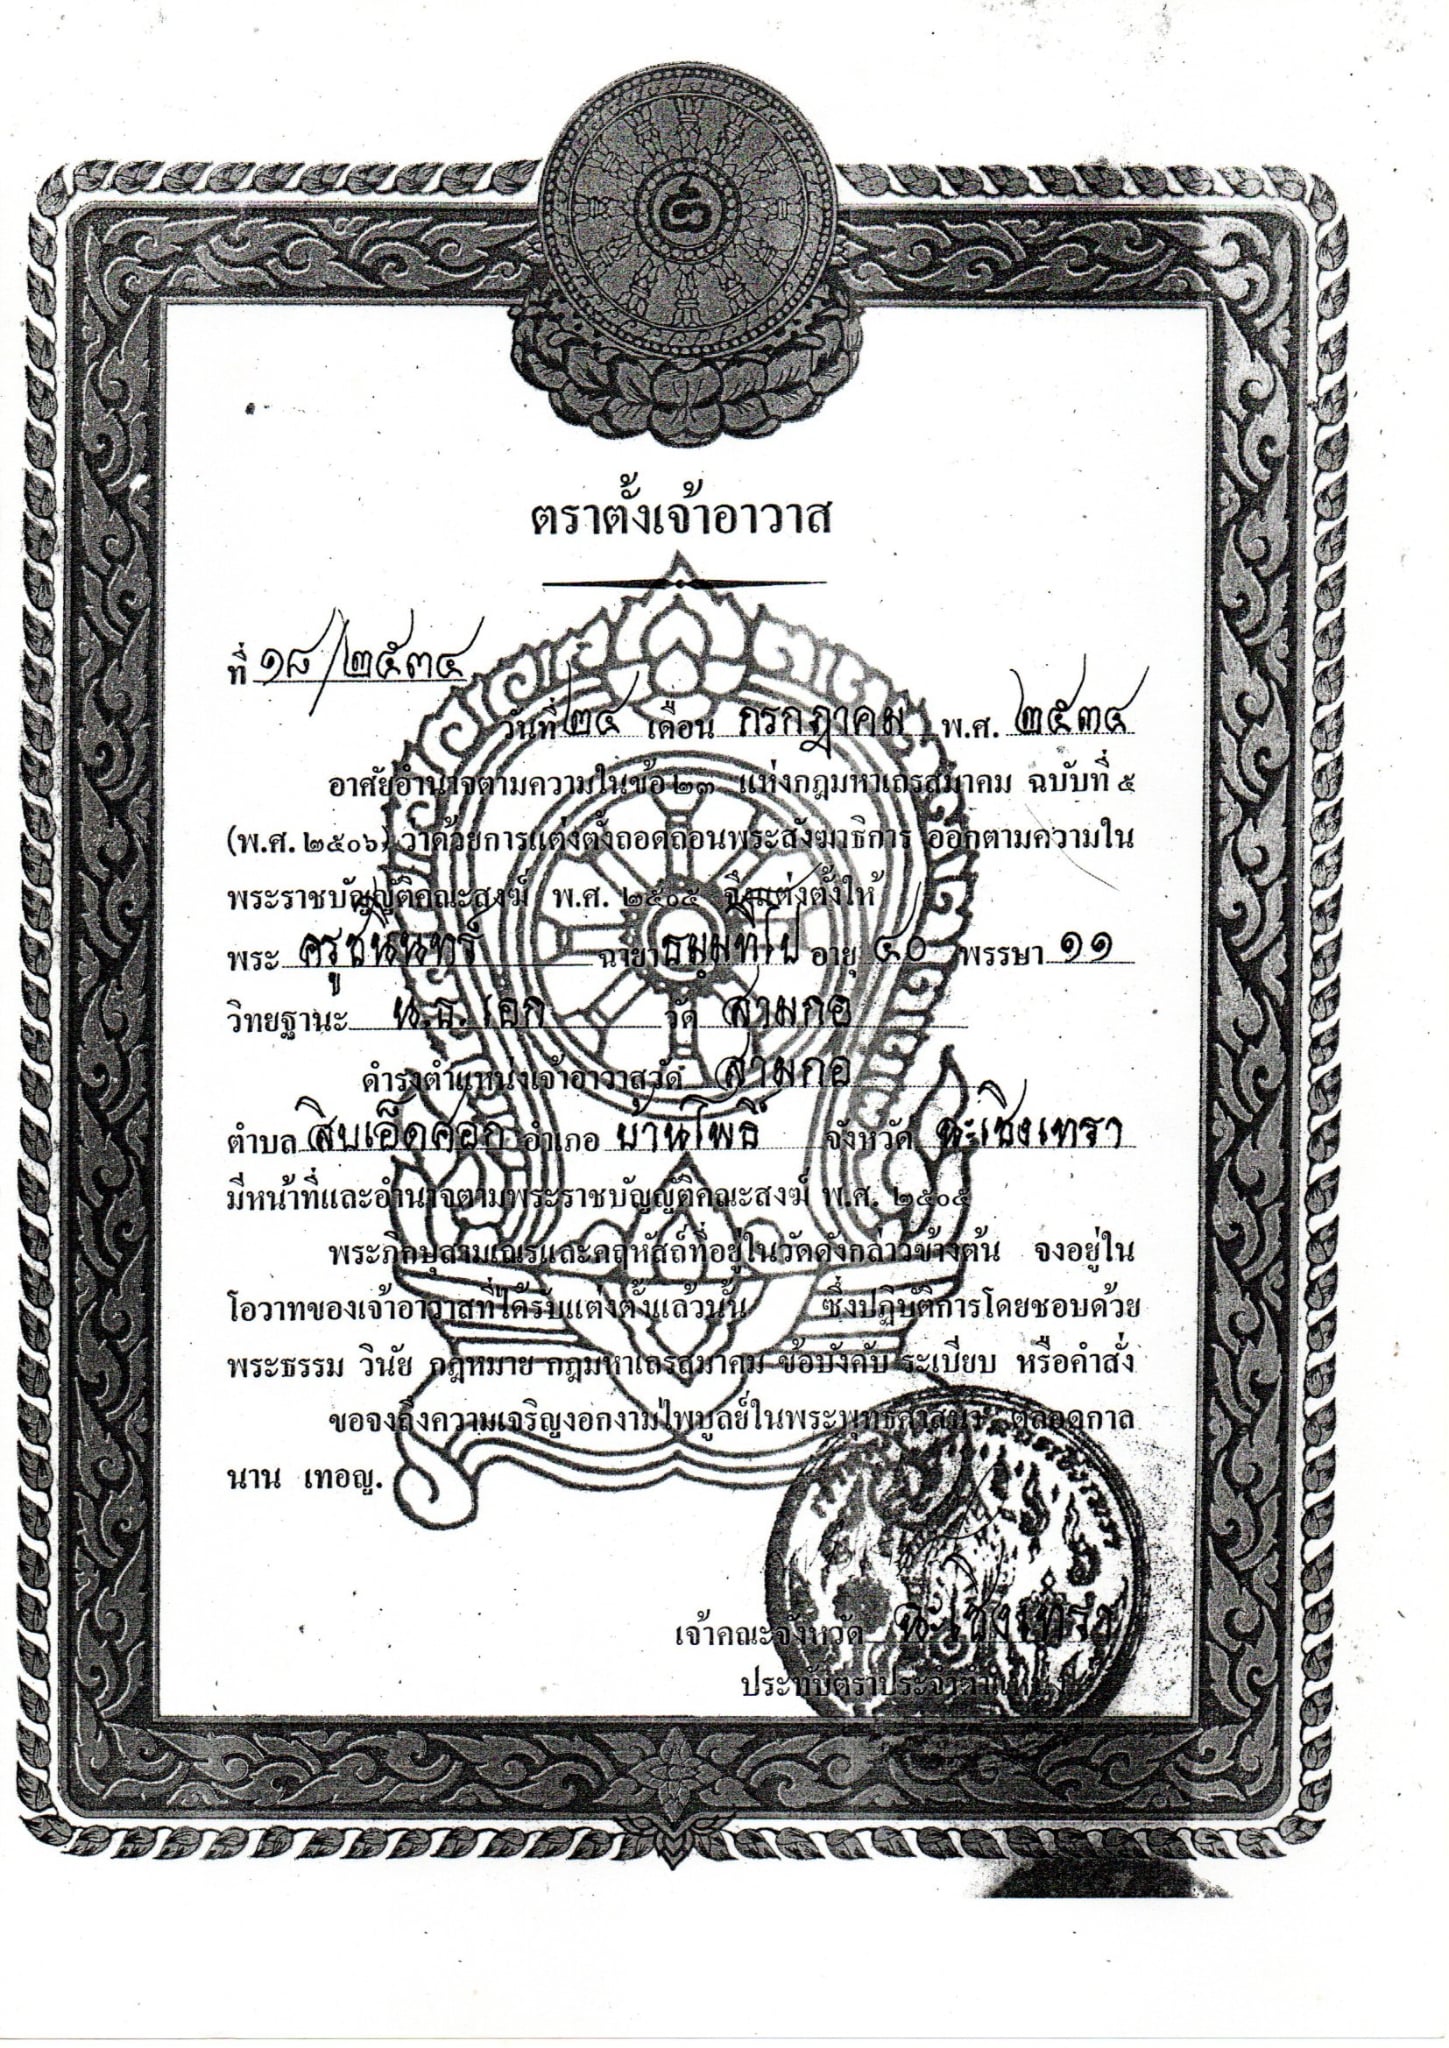 ตราตั้งเจ้าอาวาส
ที่ ๑๘/๒๕๓๔
วันที่ ๒๔ เดือน กรกฎาคม พ.ศ. ๒๕๓๔
อาศัยอำนาจตามความในข้อ ๒๓ แห่งกฎมหาเถรสมาคม ฉบับที่ ๕
(พ.ศ. ๒๕๐๖) ว่าด้วยการแต่งตั้งถอดถอนพระสังฆาธิการ ออกตามความใน
พระราชบัญญัติคณะสงฆ์ พ.ศ. ๒๕๐๕ จึงแต่งตั้งให้
พระ ครูชนินทร์ ฉายา ธมฺมทีโป อายุ ๔๐ พรรษา ๑๑
วิทยฐานะ น.ธ. เอก วัด สามกอ
ดำรงตำแหน่งเจ้าอาวาสวัด สามกอ
ตำบล สิบเอ็ดศอก อำเภอ บ้านโพธิ์ จังหวัด ฉะเชิงเทรา
มีหน้าที่และอำนาจตามพระราชบัญญัติคณะสงฆ์ พ.ศ. ๒๕๐๕
พระภิกษุสามเณรและคฤหัสถ์ที่อยู่ในวัดดังกล่าวข้างต้น จงอยู่ใน
โอวาทของเจ้าอาวาสที่ได้รับแต่งตั้งแล้วนั้น ซึ่งปฏิบัติการโดยชอบด้วย
พระธรรม วินัย กฎหมาย กฎมหาเถรสมาคม ข้อบังคับ ระเบียบ หรือคำสั่ง
ขอจงถึงความเจริญงอกงามไพบูลย์ในพระพุทธศาสนา ตลอดกาล
นาน เทอญ.
เจ้าคณะจังหวัด ฉะเชิงเทรา
ประทับตราประจำตำแหน่ง